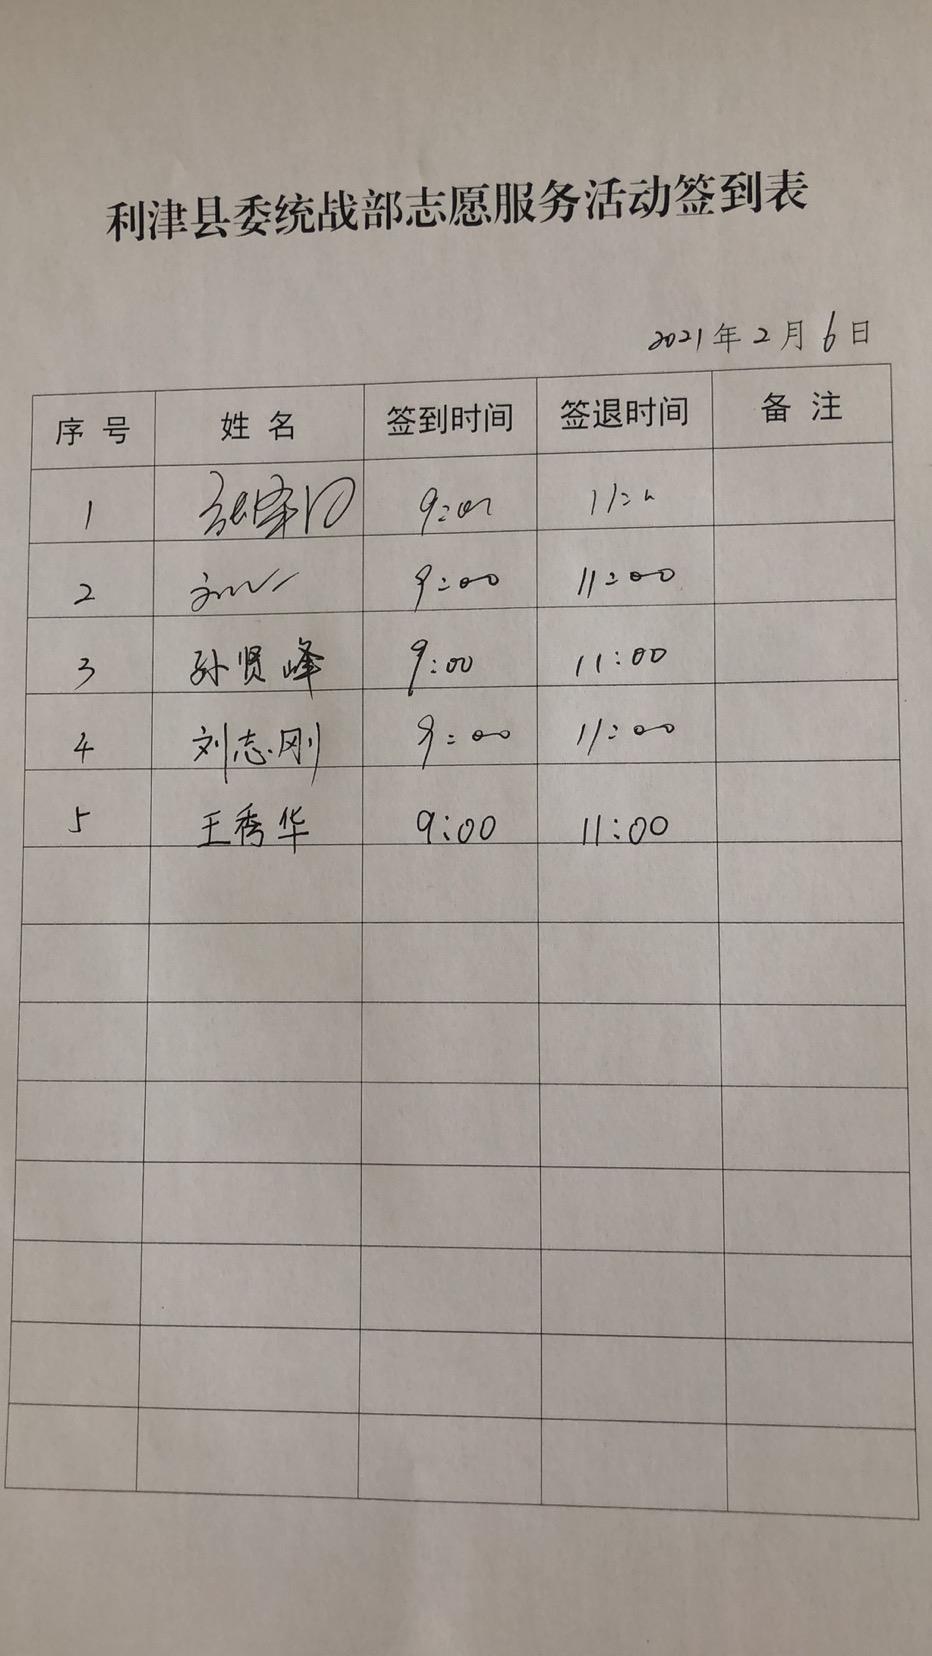 利津县委统战部志愿服务活动签到表
2021年2月6日
序号 姓名 签到时间 签退时间 备注
1 9:00
2 9:00 11:00
3 孙贤峰 9:00 11:00
4 刘志刚 9:00 11:00
5 王秀华 9:00 11:00